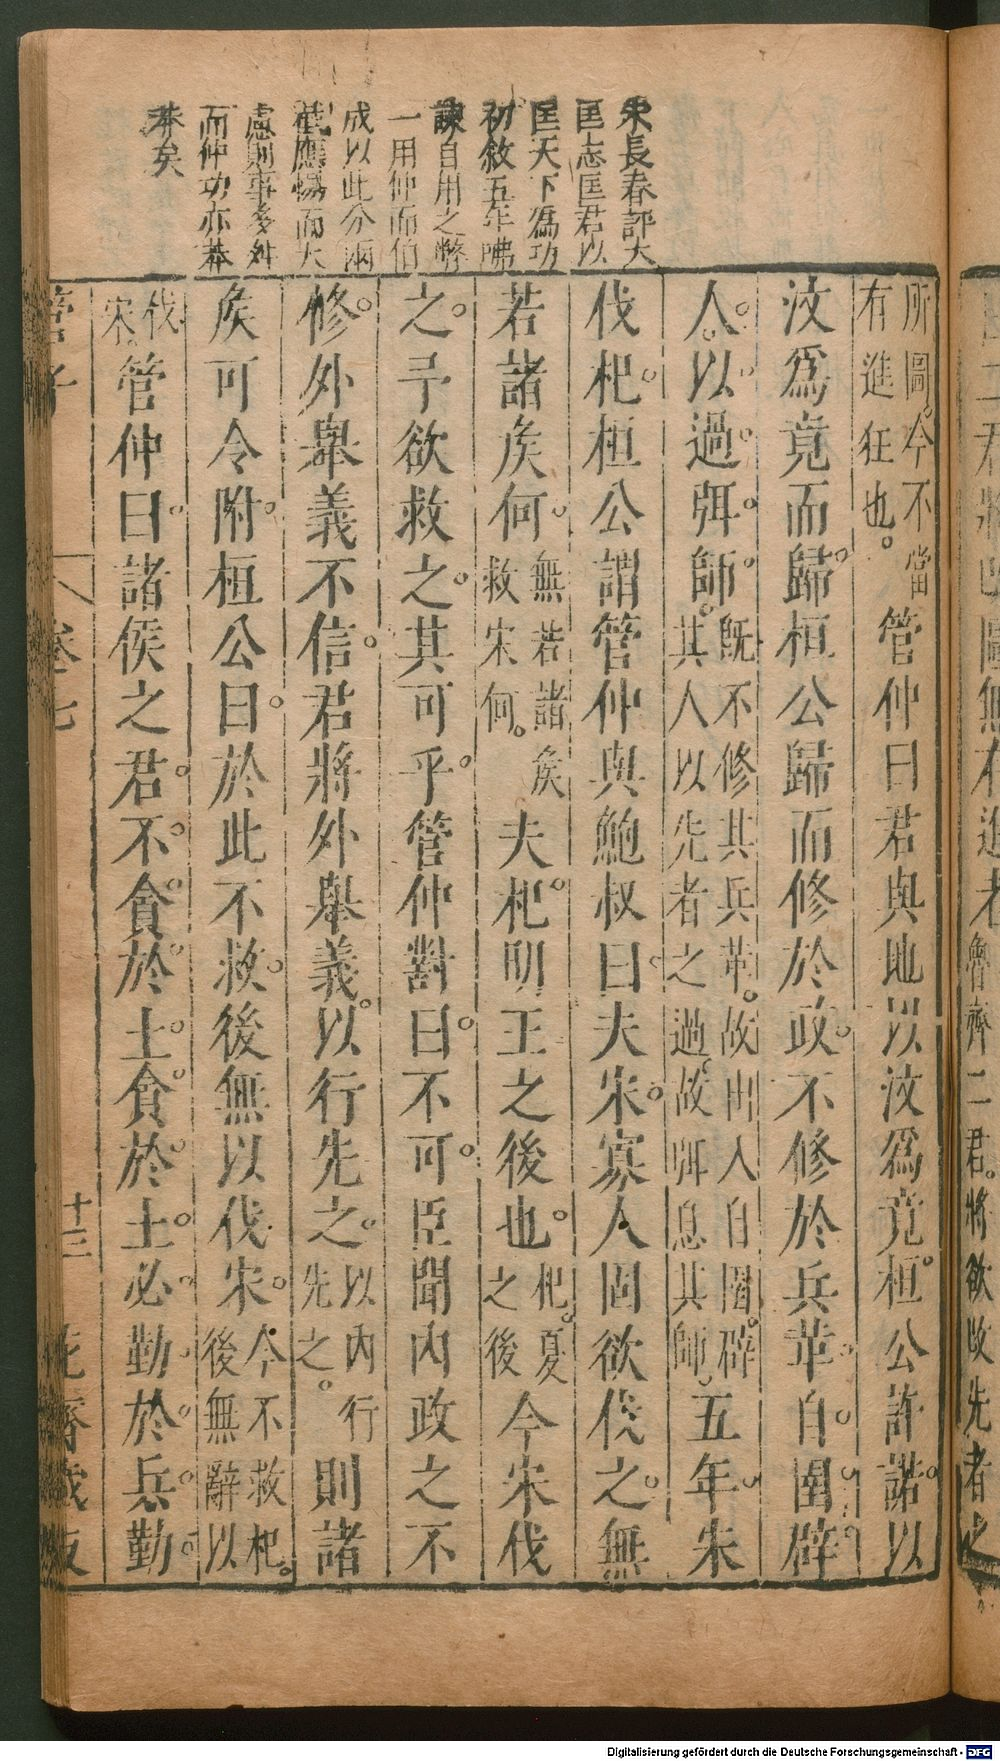 朱長春評大
匡志匡君以
匡天下爲功
初敘五年咈
諫自用之弊
一用仲而伯
成以此分兩
截應惕而大
慮則事多舛
而仲功亦莽
莽矣
所圖。今不當
有進狂也。
管仲曰君與地以汶爲竟桓公許諾以
汶爲竟而歸桓公歸而修於政不修於兵革自圉辟
人以過弭師
既不修其兵革。故出入自圉。辟
其人以先者之過。故弭息其師。
五年朱
伐杞桓公謂管仲與鮑叔曰夫宋寡人固欲伐之無
若諸矦何
無若諸矦
救宋何。
夫杞明王之後也
杞。夏
之後
今宋伐
之予欲救之其可乎管仲對曰不可臣聞內政之不
修外舉義不信君將外舉義以行先之
以內行
先之。
則諸
矦可令附桓公曰於此不救後無以伐宋
今不救杞。
後無辭以
伐
宋。
管仲曰諸侯之君不貪於土貪於土必勤於兵勤
管子
卷七
十三
花齋藏板
魯齊二君。將欲改先者之
Digitalisierung gefördert durch die Deutsche Forschungsgemeinschaft - DFG